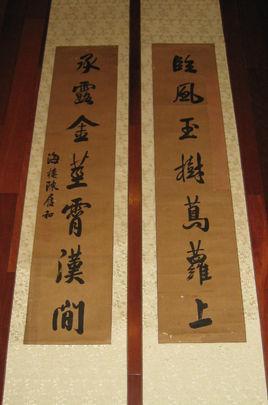 臨風玉樹蔦蘿上
承露金莖霄漢間
海樓陳履和